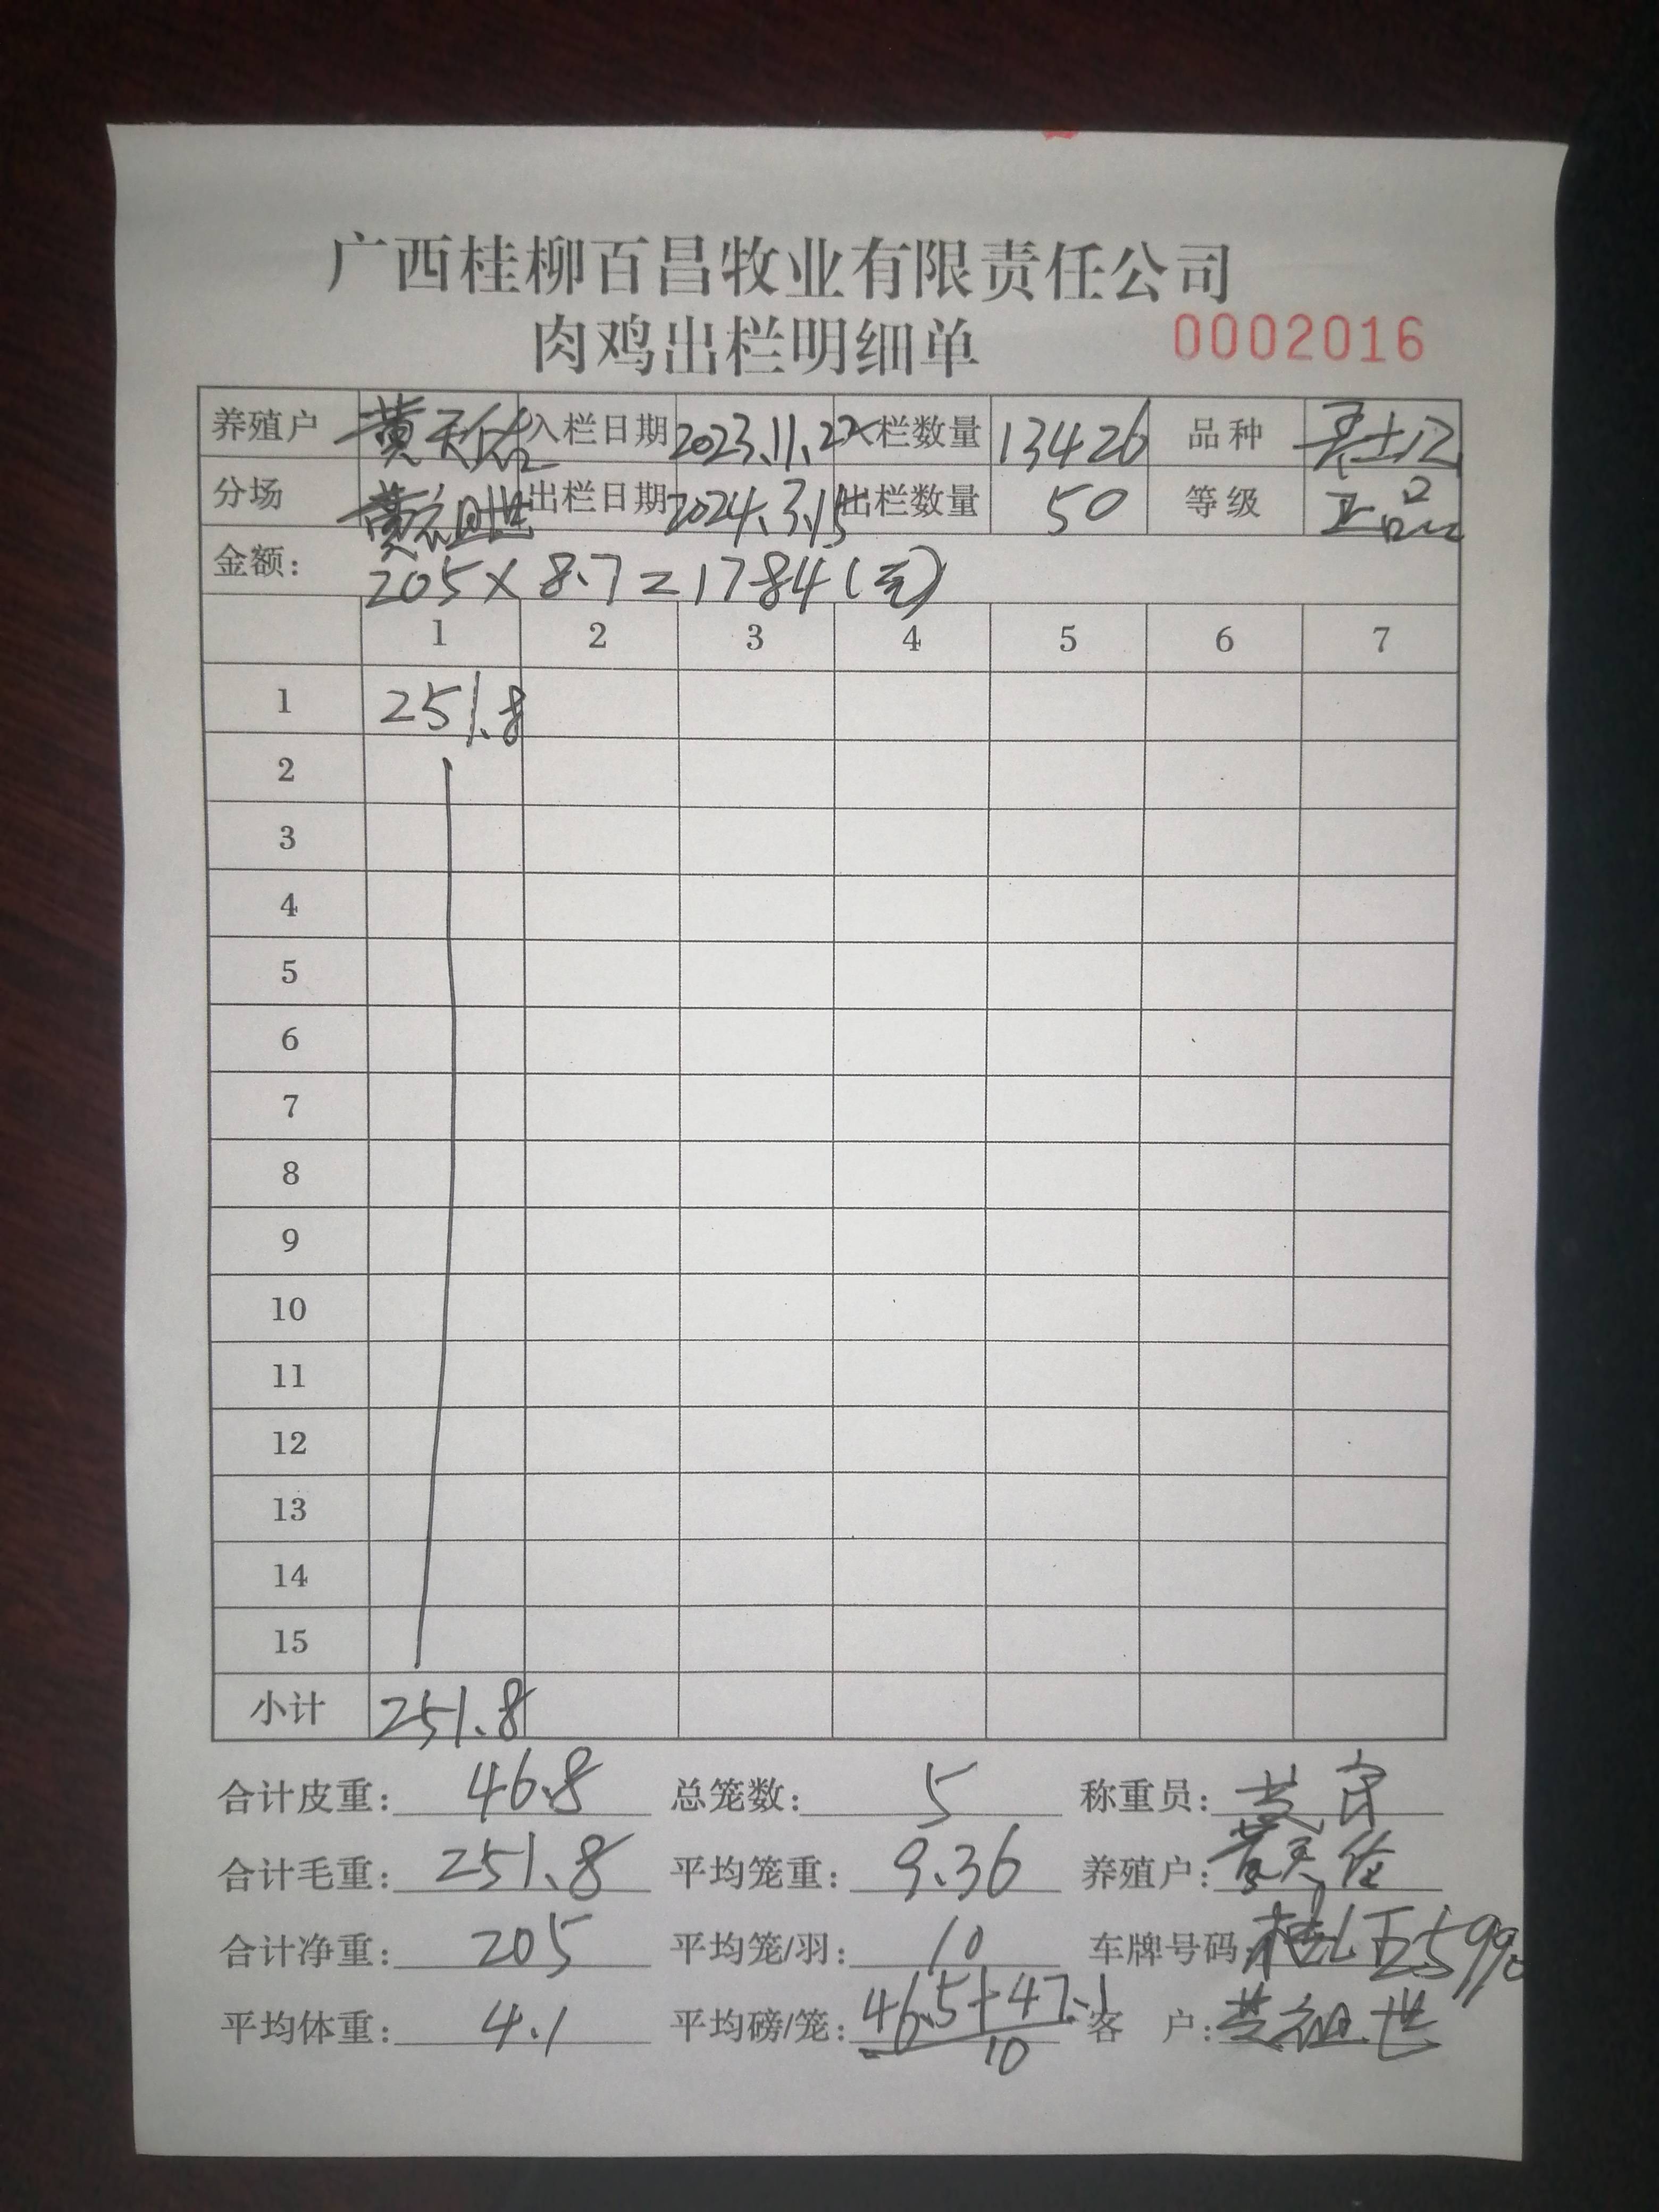 广西桂柳百昌牧业有限责任公司
肉鸡出栏明细单 0002016
养殖户 黄天佑 入栏日期 2023.11.22 入栏数量 13426 品种
分场 黄祖世 出栏日期 2024.3.15 出栏数量 50 等级 正品
金额: 205×8.7=1784(元)
1 2 3 4 5 6 7
1 251.8
2
3
4
5
6
7
8
9
10
11
12
13
14
15
小计 251.8
合计皮重: 46.8 总笼数: 5 称重员: 黄
合计毛重: 251.8 平均笼重: 9.36 养殖户: 黄天佑
合计净重: 205 平均笼/羽: 10 车牌号码:
平均体重: 4.1 平均磅/笼: 46.5+47.1 客 户: 黄祖世
10